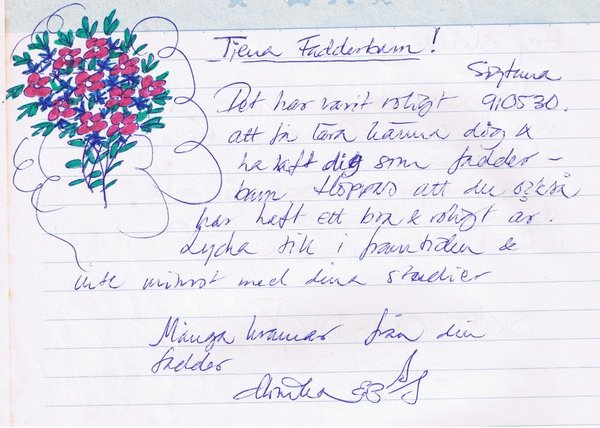 Fadderbarn!
Sigtuna
Det har varit roligt 910530.
att få lära känna dig &
ha haft dig som fadder-
barn Hoppas att du också
har haft ett bra & roligt år.
Lycka till i framtiden &
inte minst med dina studier
Många kramar från din
fadder
Monika